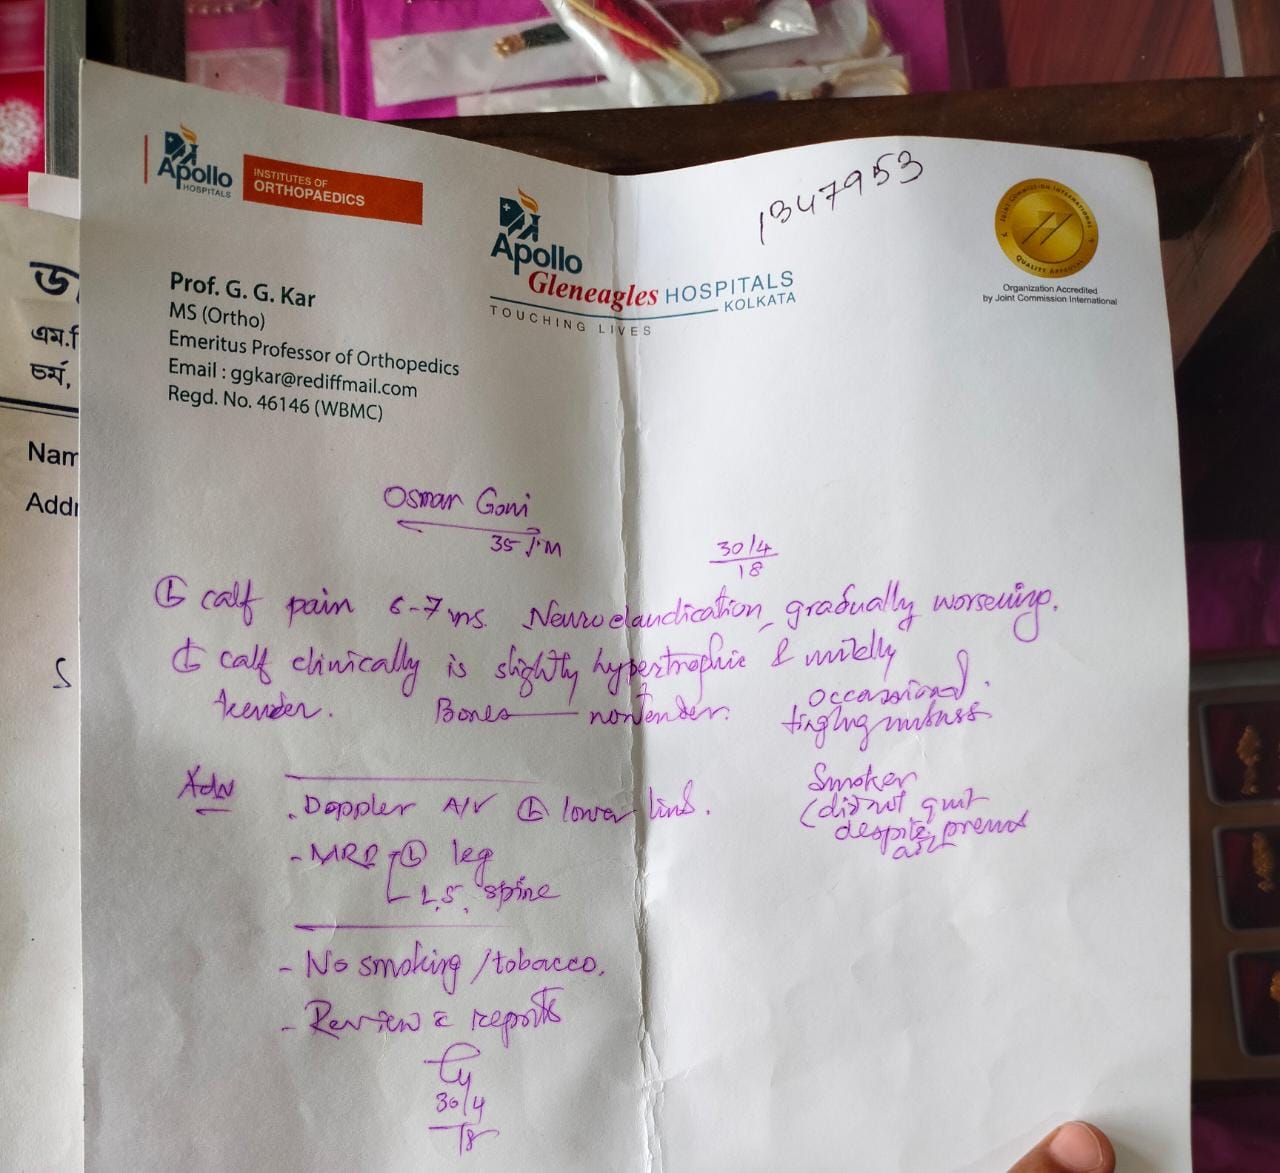 Apollo
HOSPITALS
INSTITUTES OF
ORTHOPAEDICS
Apollo
Gleneagles HOSPITALS
KOLKATA
TOUCHING LIVES
1347953
JOINT COMMISSION INTERNATIONAL
QUALITY APPROVAL
Organization Accredited
by Joint Commission International
Prof. G. G. Kar
MS (Ortho)
Emeritus Professor of Orthopedics
Email : ggkar@rediffmail.com
Regd. No. 46146 (WBMC)
এম.
চর্ম,
Nam
Addr
Osman Goni
35 / M
30/4
18
Ⓛ calf pain 6-7 yrs. Neuroclaudication, gradually worsening.
Ⓛ calf clinically is slightly hypertrophic & mildly
tender. Bones — nontender.
occassional
tingling numbness
Adv
. Doppler A/V Ⓛ lower limb.
- MRI Ⓛ leg
L.S. spine
Smoker
(did not quit
despite previous
- No smoking / tobacco.
- Review c reports
30/4
18